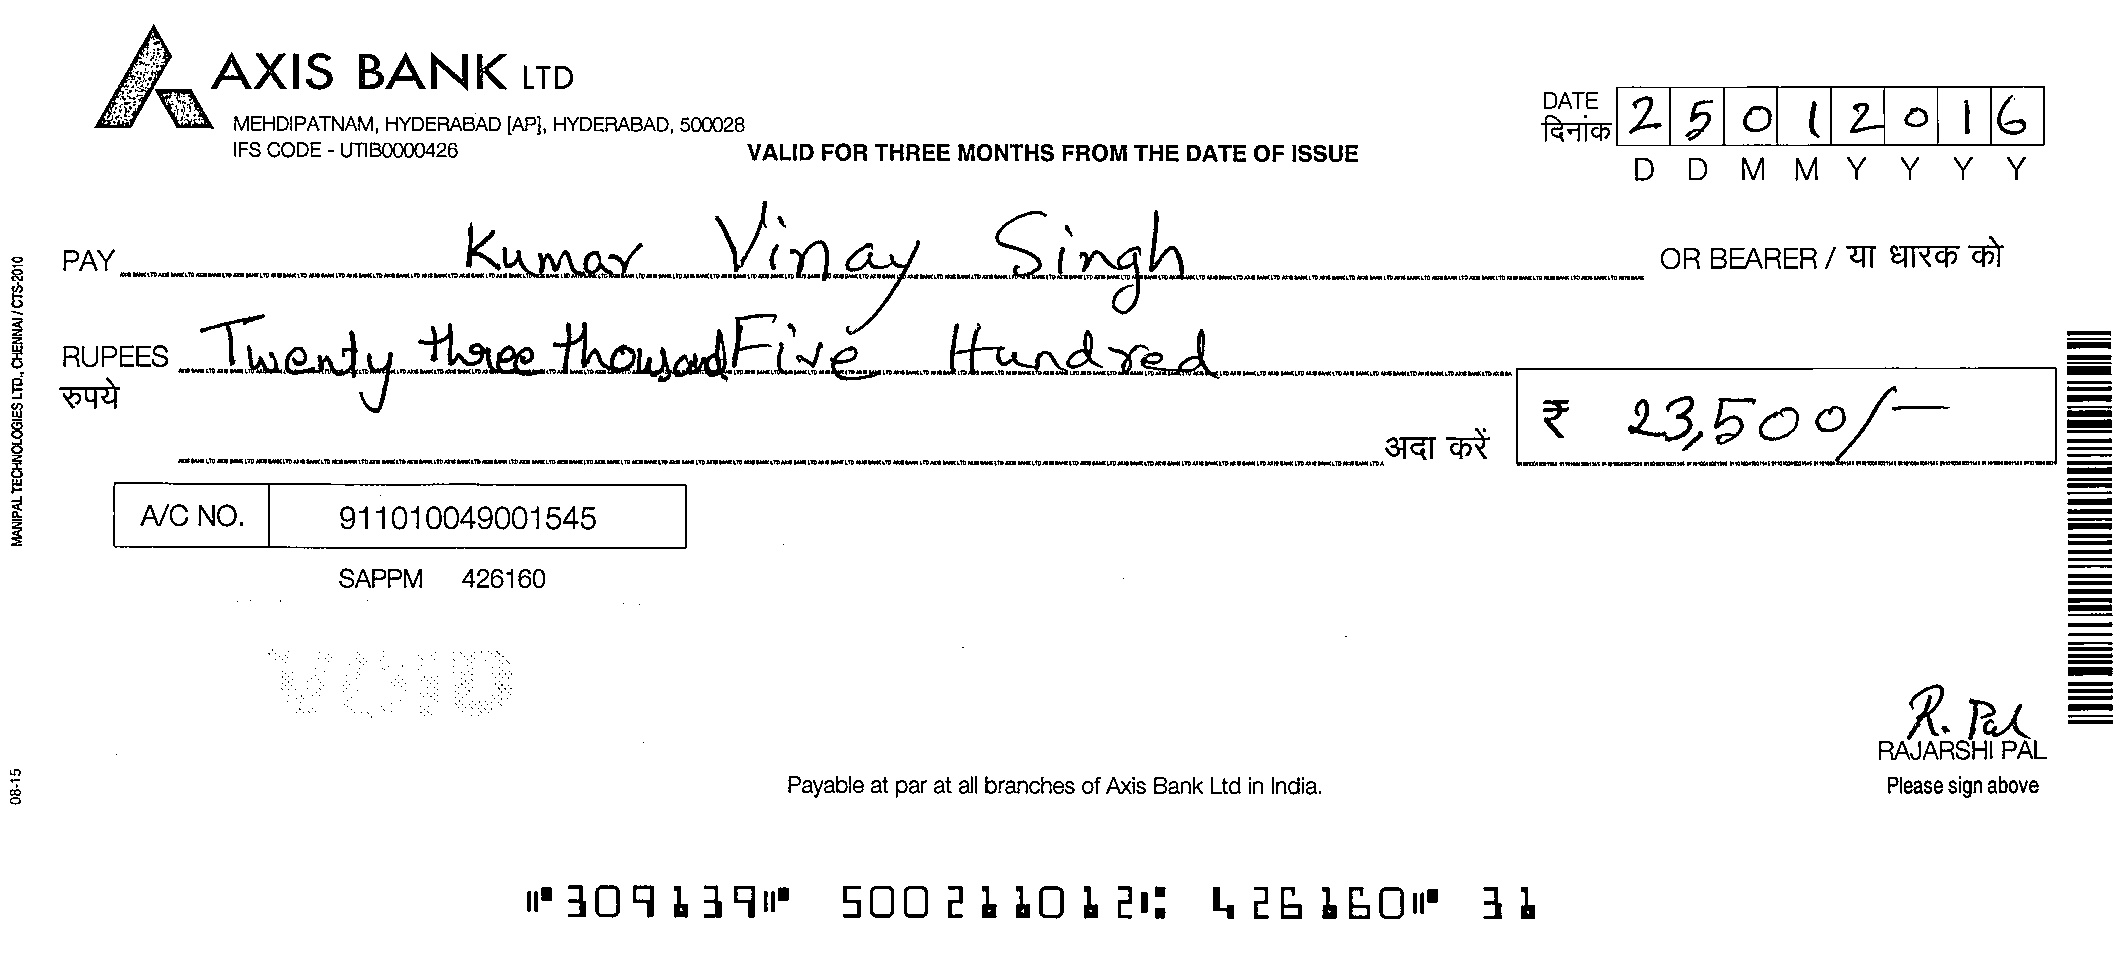 AXIS BANK LTD
MEHDIPATNAM, HYDERABAD [AP], HYDERABAD, 500028
IFS CODE - UTIB0000426
VALID FOR THREE MONTHS FROM THE DATE OF ISSUE
DATE
दिनांक 2 5 0 1 2 0 1 6
D D M M Y Y Y Y
PAY Kumar Vinay Singh OR BEARER / या धारक को
RUPEES Twenty three thousand Five Hundred
रुपये
अदा करें ₹ 23,500/-
A/C NO. 911010049001545
SAPPM 426160
VOID
R. Pal
RAJARSHI PAL
Please sign above
Payable at par at all branches of Axis Bank Ltd in India.
⑈309139⑈ 500211012⑆ 426160⑈ 31
MANIPAL TECHNOLOGIES LTD., CHENNAI / CTS-2010
08-15